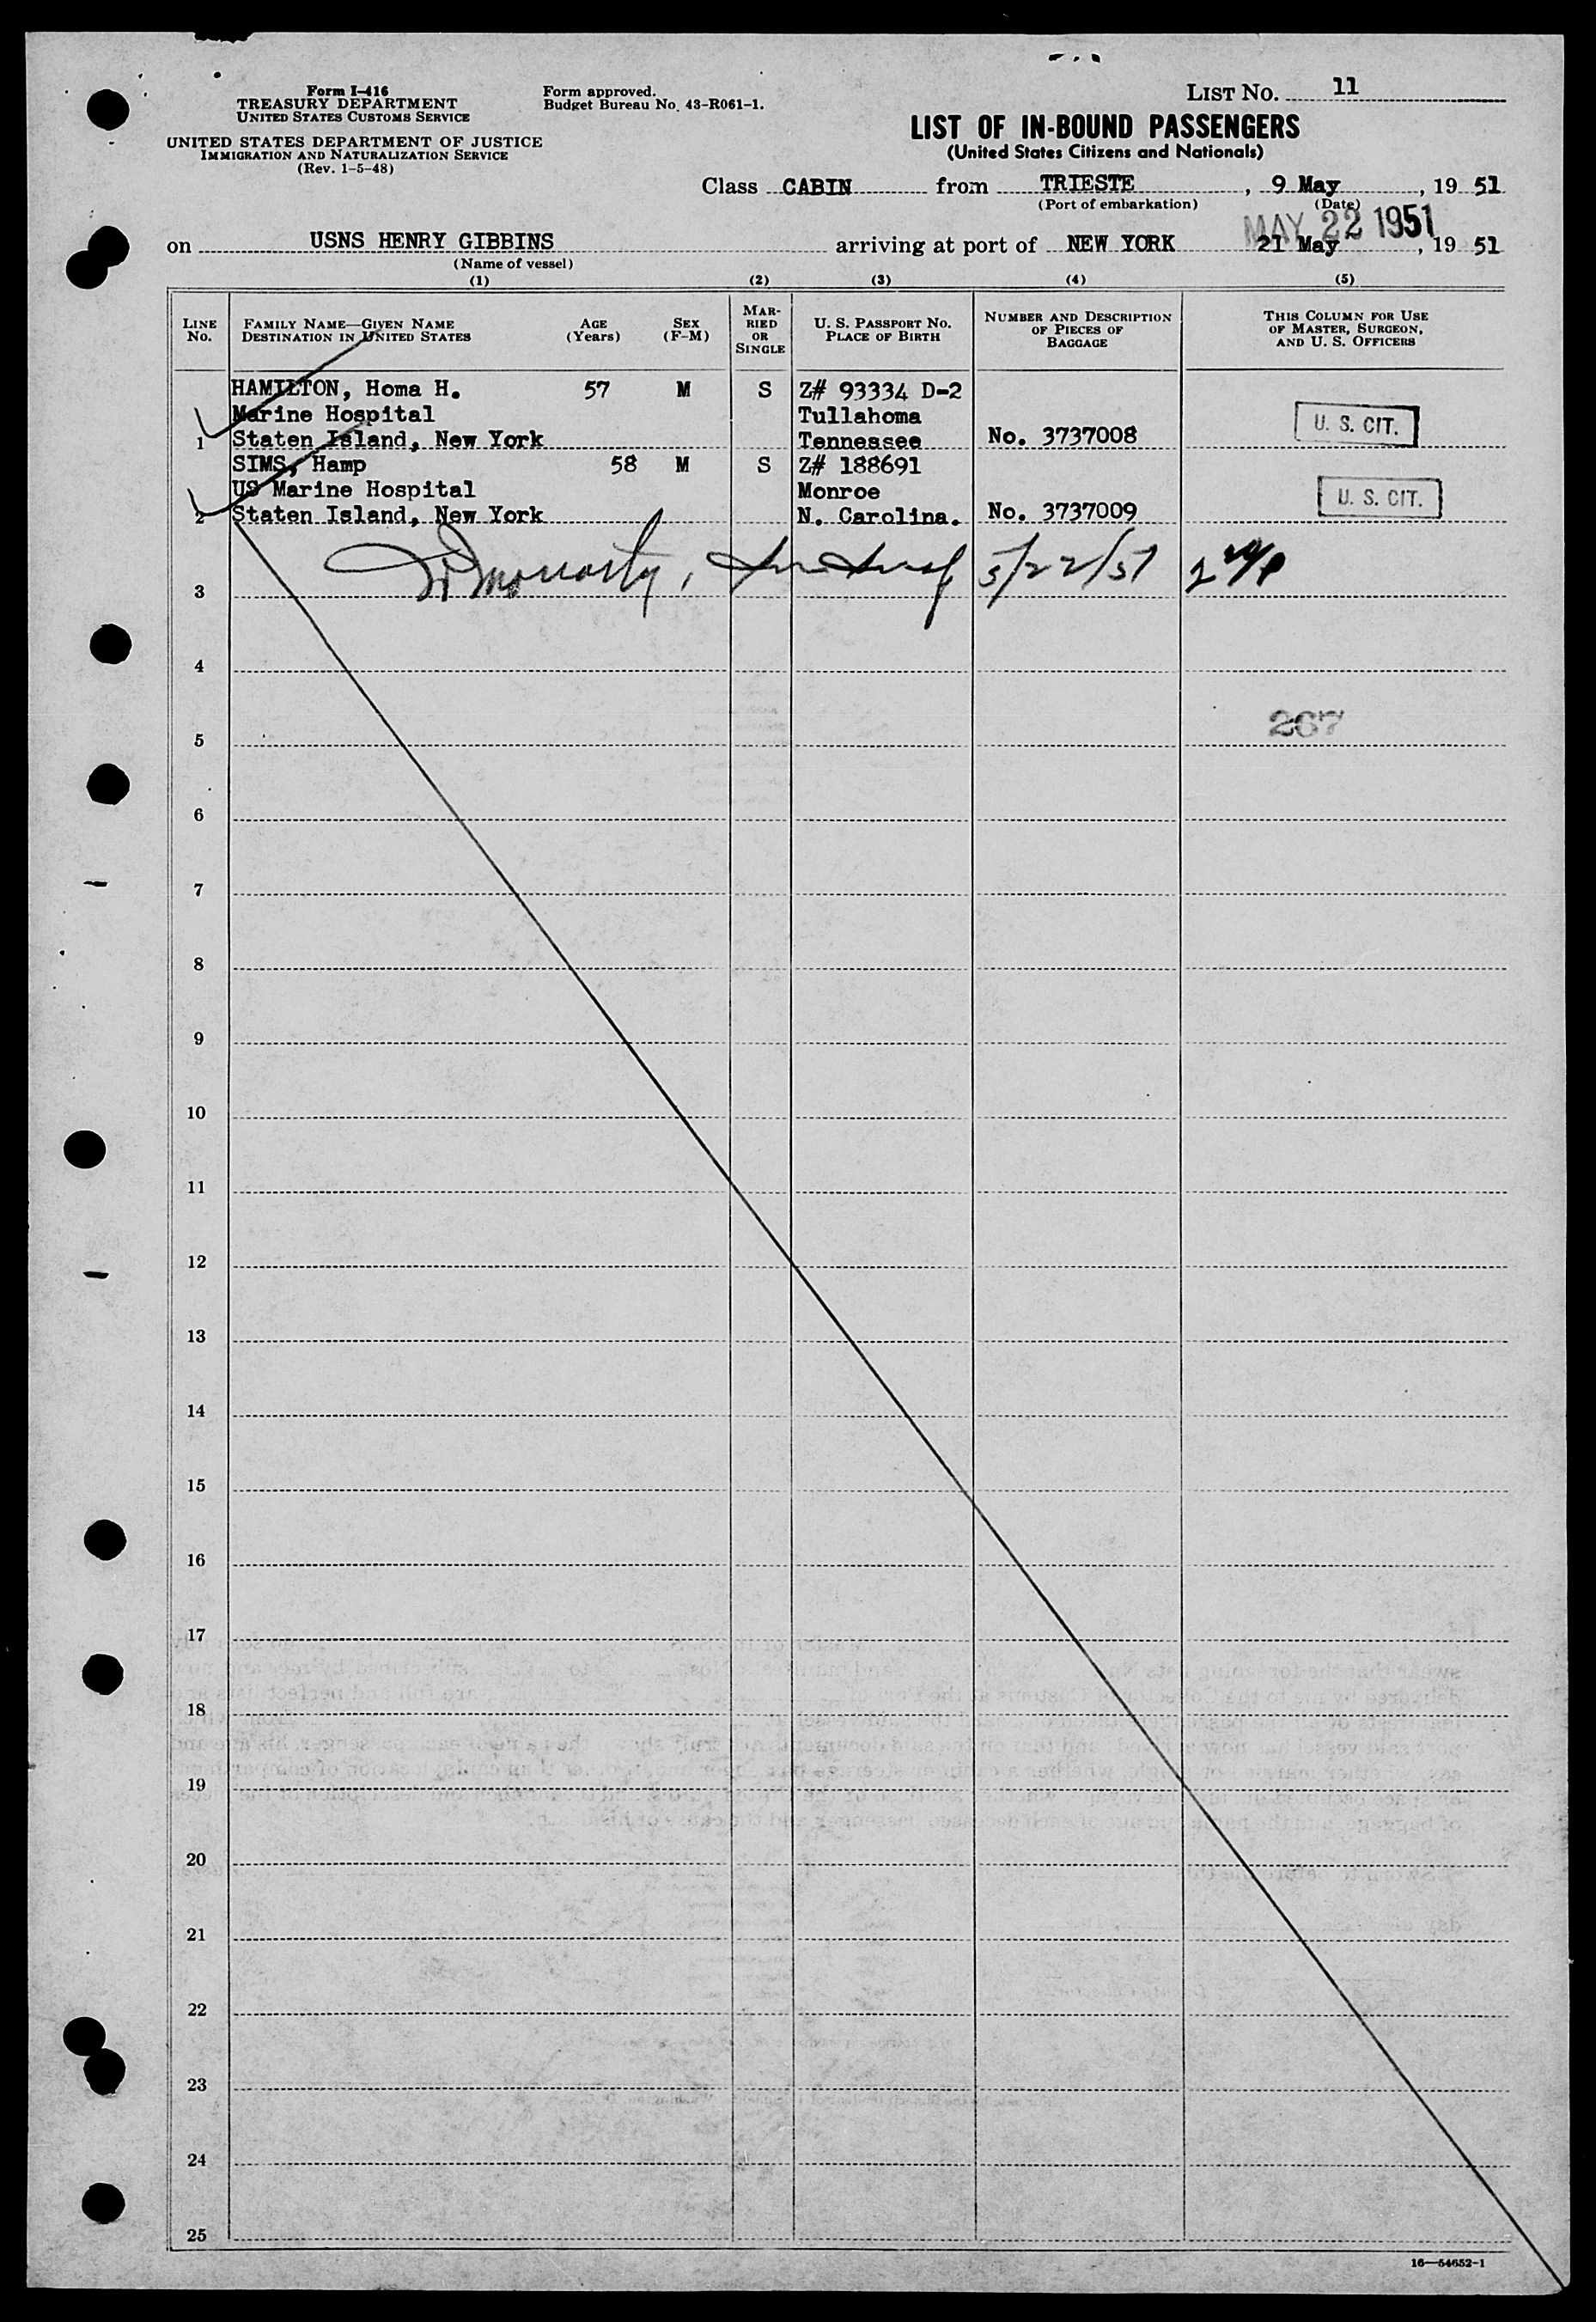 Form I-416
TREASURY DEPARTMENT
UNITED STATES CUSTOMS SERVICE
UNITED STATES DEPARTMENT OF JUSTICE
IMMIGRATION AND NATURALIZATION SERVICE
(Rev. 1-5-48)
Form approved.
Budget Bureau No. 43-R061-1.
LIST NO. 11
LIST OF IN-BOUND PASSENGERS
(United States Citizens and Nationals)
Class CABIN from TRIESTE, 9 May, 19 51
(Port of embarkation) (Date)
MAY 22 1951
on USNS HENRY GIBBINS arriving at port of NEW YORK 21 May, 19 51
(Name of vessel)
(1) (2) (3) (4) (5)
LINE No. FAMILY NAME—GIVEN NAME DESTINATION IN UNITED STATES AGE (Years) SEX (F-M) MARRIED OR SINGLE U. S. PASSPORT NO. PLACE OF BIRTH NUMBER AND DESCRIPTION OF PIECES OF BAGGAGE THIS COLUMN FOR USE OF MASTER, SURGEON, AND U. S. OFFICERS
HAMILTON, Homa H. 57 M S Z# 93334 D-2
Marine Hospital Tullahoma U. S. CIT.
1 Staten Island, New York Tennessee No. 3737008
SIMS, Hamp 58 M S Z# 188691
US Marine Hospital Monroe U. S. CIT.
2 Staten Island, New York N. Carolina. No. 3737009
3 5/22/51
4
5 267
6
7
8
9
10
11
12
13
14
15
16
17
18
19
20
21
22
23
24
25
16—54652-1